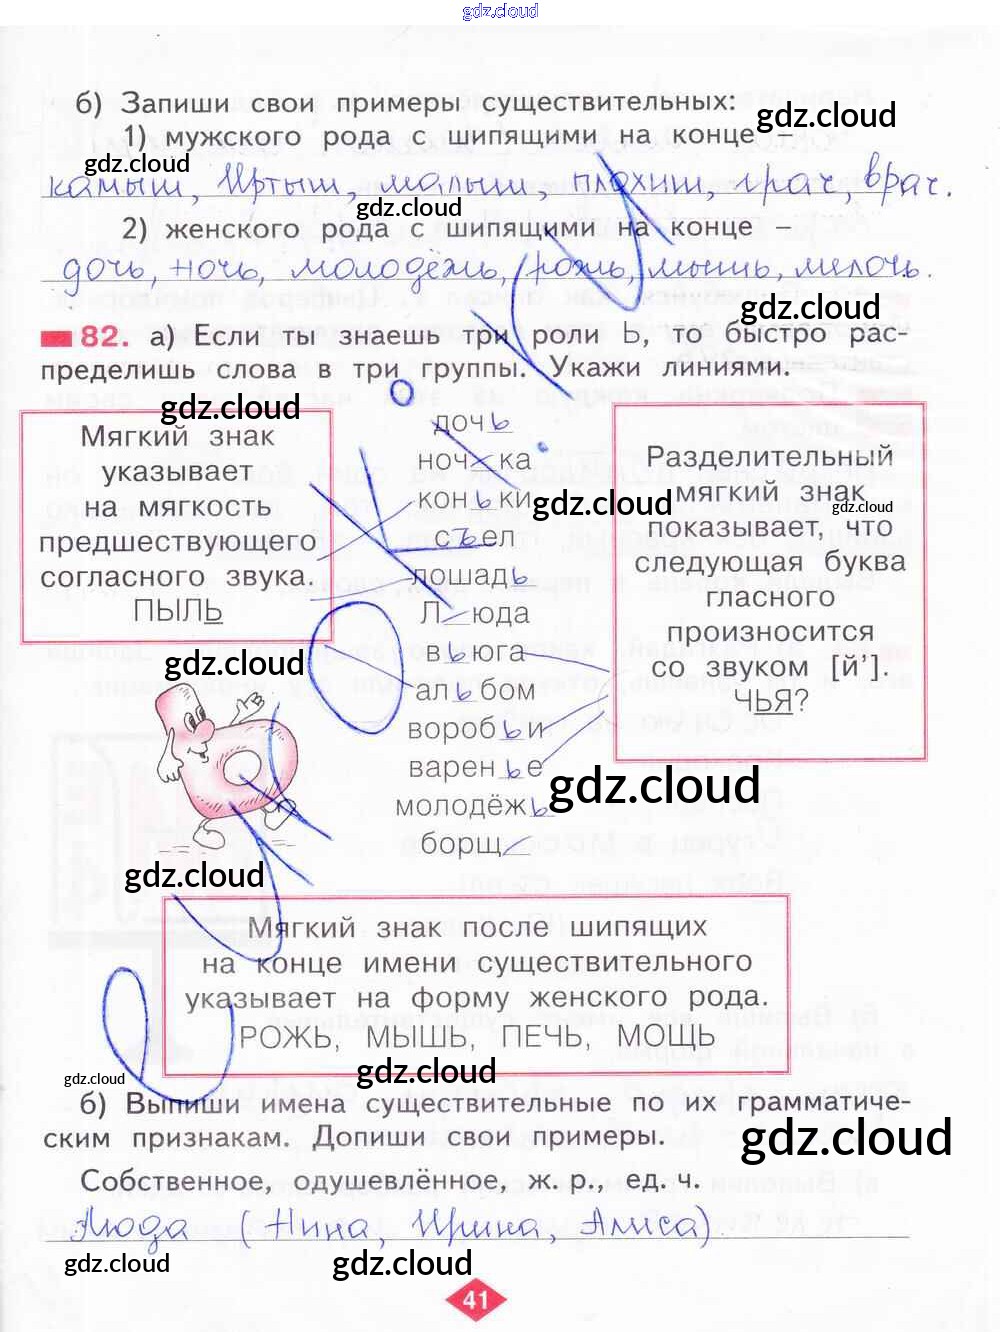 gdz.cloud
б) Запиши свои примеры существительных:
gdz.cloud
1) мужского рода с шипящими на конце –
gdz.cloud
камыш, Иртыш, малыш, плохиш, грач, врач.
gdz.cloud
2) женского рода с шипящими на конце –
дочь, ночь, молодёжь, рожь, мышь, мелочь.
gdz.cloud
82. а) Если ты знаешь три роли Ь, то быстро рас-
пределишь слова в три группы. Укажи линиями.
gdz.cloud
Мягкий знак
указывает
на мягкость
предшествующего
согласного звука.
ПЫЛЬ
дочь
ноч_ка
коньки
съел
лошадь
Л_юда
вьюга
альбом
воробьи
варенье
молодёжь
борщ_
Разделительный
мягкий знак
показывает, что
следующая буква
гласного
произносится
со звуком [й’].
ЧЬЯ?
gdz.cloud
gdz.cloud
gdz.cloud
gdz.cloud
gdz.cloud
gdz.cloud
Мягкий знак после шипящих
на конце имени существительного
указывает на форму женского рода.
РОЖЬ, МЫШЬ, ПЕЧЬ, МОЩЬ
gdz.cloud
gdz.cloud
б) Выпиши имена существительные по их грамматиче-
ским признакам. Допиши свои примеры.
gdz.cloud
Собственное, одушевлённое, ж. р., ед. ч.
Люда (Нина, Ирина, Алиса)
gdz.cloud
gdz.cloud
gdz.cloud
41